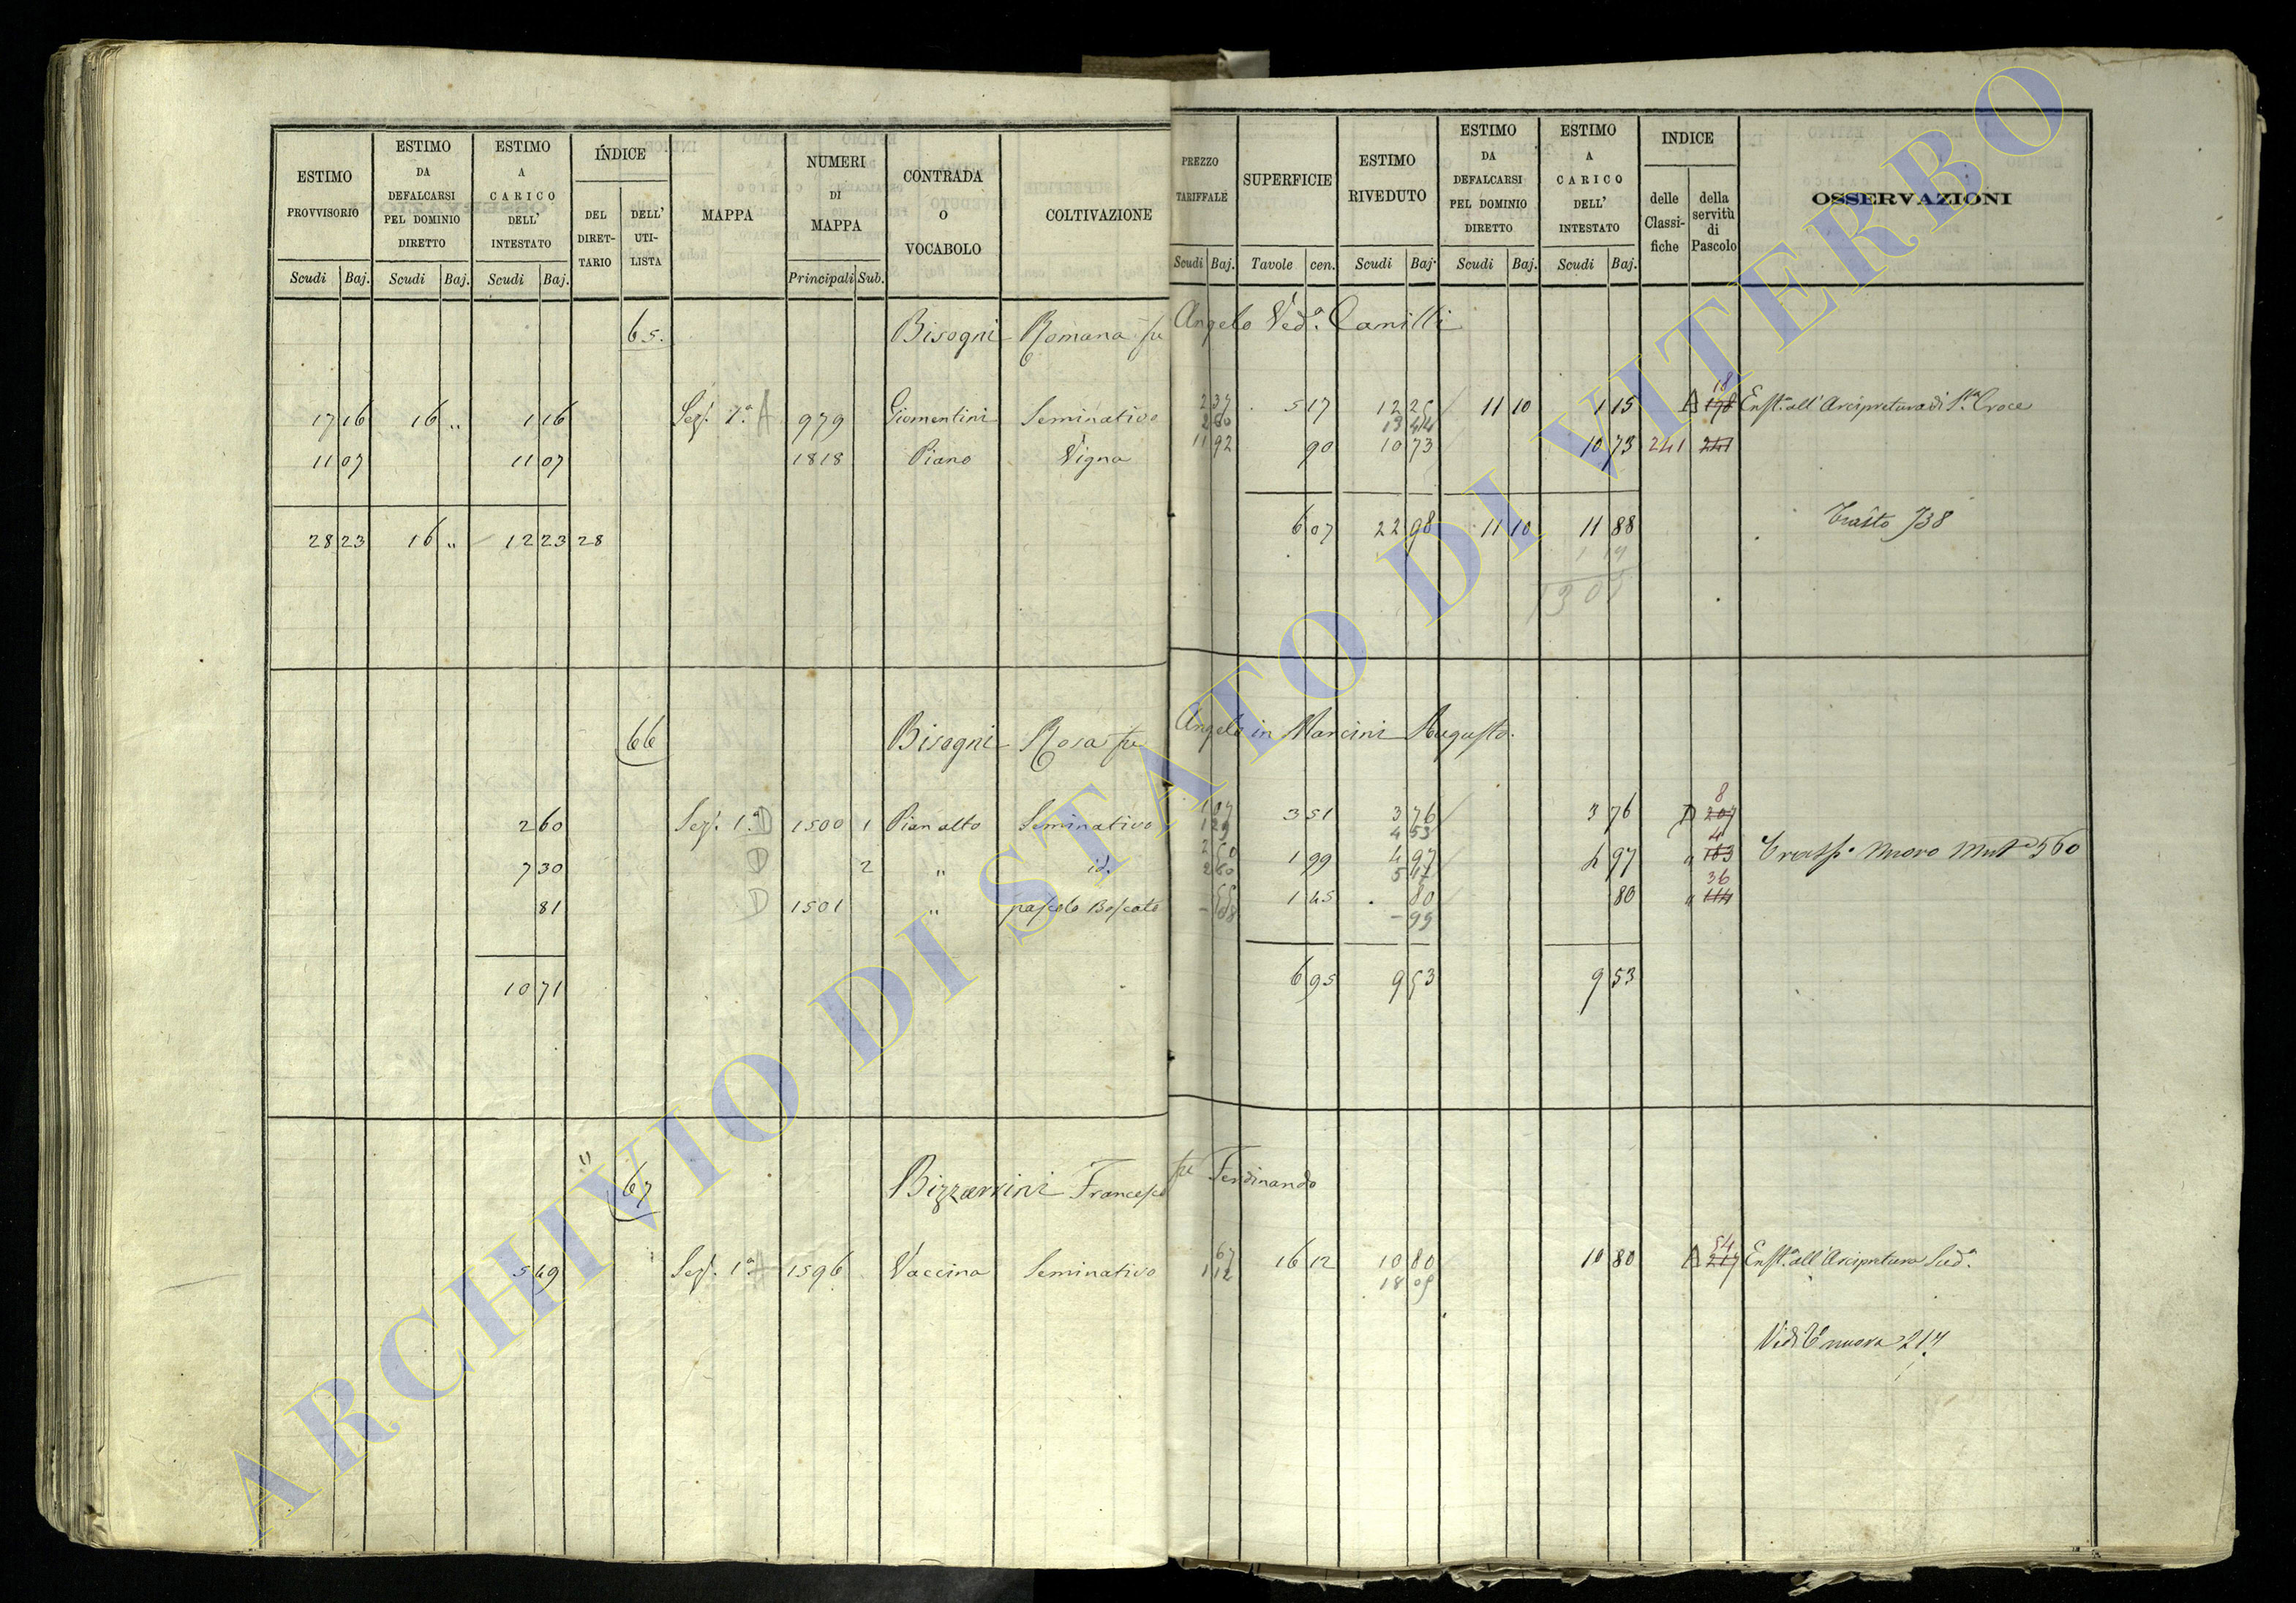 ESTIMO PROVVISORIO
Scudi Baj.
ESTIMO DA DEFALCARSI PEL DOMINIO DIRETTO
Scudi Baj.
ESTIMO A CARICO DELL' INTESTATO
Scudi Baj.
INDICE
DEL DIRET-TARIO
DELL' UTI-LISTA
MAPPA
NUMERI DI MAPPA
Principali Sub.
CONTRADA O VOCABOLO
COLTIVAZIONE
PREZZO TARIFFALE
Scudi Baj.
SUPERFICIE
Tavole cen.
ESTIMO RIVEDUTO
Scudi Baj.
ESTIMO DA DEFALCARSI PEL DOMINIO DIRETTO
Scudi Baj.
ESTIMO A CARICO DELL' INTESTATO
Scudi Baj.
INDICE
delle Classi-fiche
della servitù di Pascolo
OSSERVAZIONI
65. Bisogni Romana fu Angelo Ved.a Camilli
18
17 16 16 " 1 16 Sez. 1.a A 979 Giomentini Seminativo 2 37 5 17 12 25 11 10 1 15 A 178 Enft.a all'Arcipretura di S.ta Croce
2 60 13 44
11 07 11 07 1818 Piano Vigna 11 92 90 10 73 10 73 241 241
28 23 16 " 12 23 28 6 07 22 98 11 10 11 88 738
1 19
13 07
66 Bisogni Rosa fu Angelo in Mancini Augusto.
8
2 60 Sez. 1.a D 1500 1 Pian alto Seminativo 1 07 3 51 3 76 3 76 D 207
1 29 4 53
4
7 30 D 2 " id. 2 50 1 99 4 97 4 97 " 163 nuovo 560
2 60 5 17
36
81 D 1501 " pascolo Boscato 55 1 45 80 80 " 114
- 68 - 99
10 71 6 95 9 53 9 53
67 Bizzarrini Francesco fu Ferdinando
54
5 49 Sez. 1.a A 1596 Vaccina Seminativo 67 16 12 10 80 10 80 A 217 Enft.a all'Arcipretura Sud.a
1 12 18 05
Vedi nuova 217
ARCHIVIO DI STATO DI VITERBO